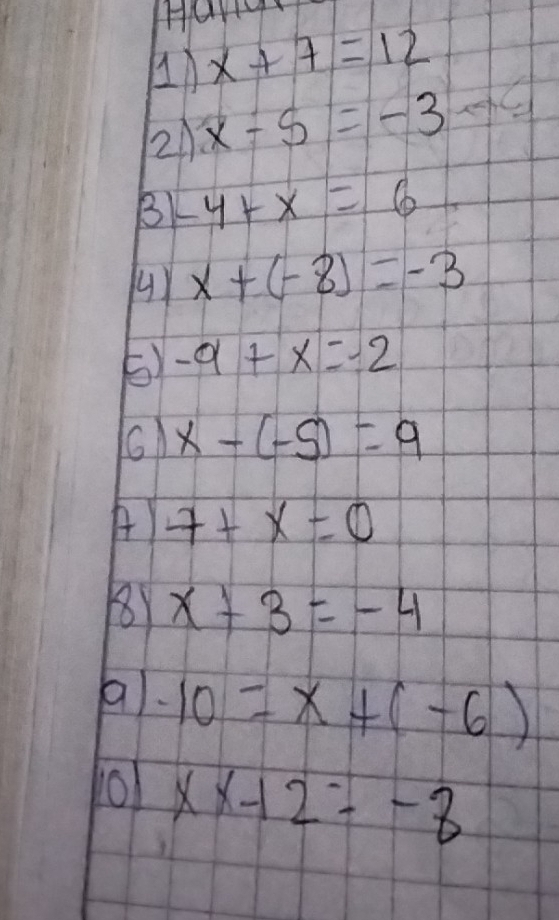 1) x + 7 = 12
2) x - 5 = -3
3) -4 + x = 6
4) x + (-8) = -3
5) -9 + x = -2
6) x - (-5) = 9
7) -7 + x = 0
8) x + 3 = -4
9) -10 = x + (-6)
10) x x - 12 = -8